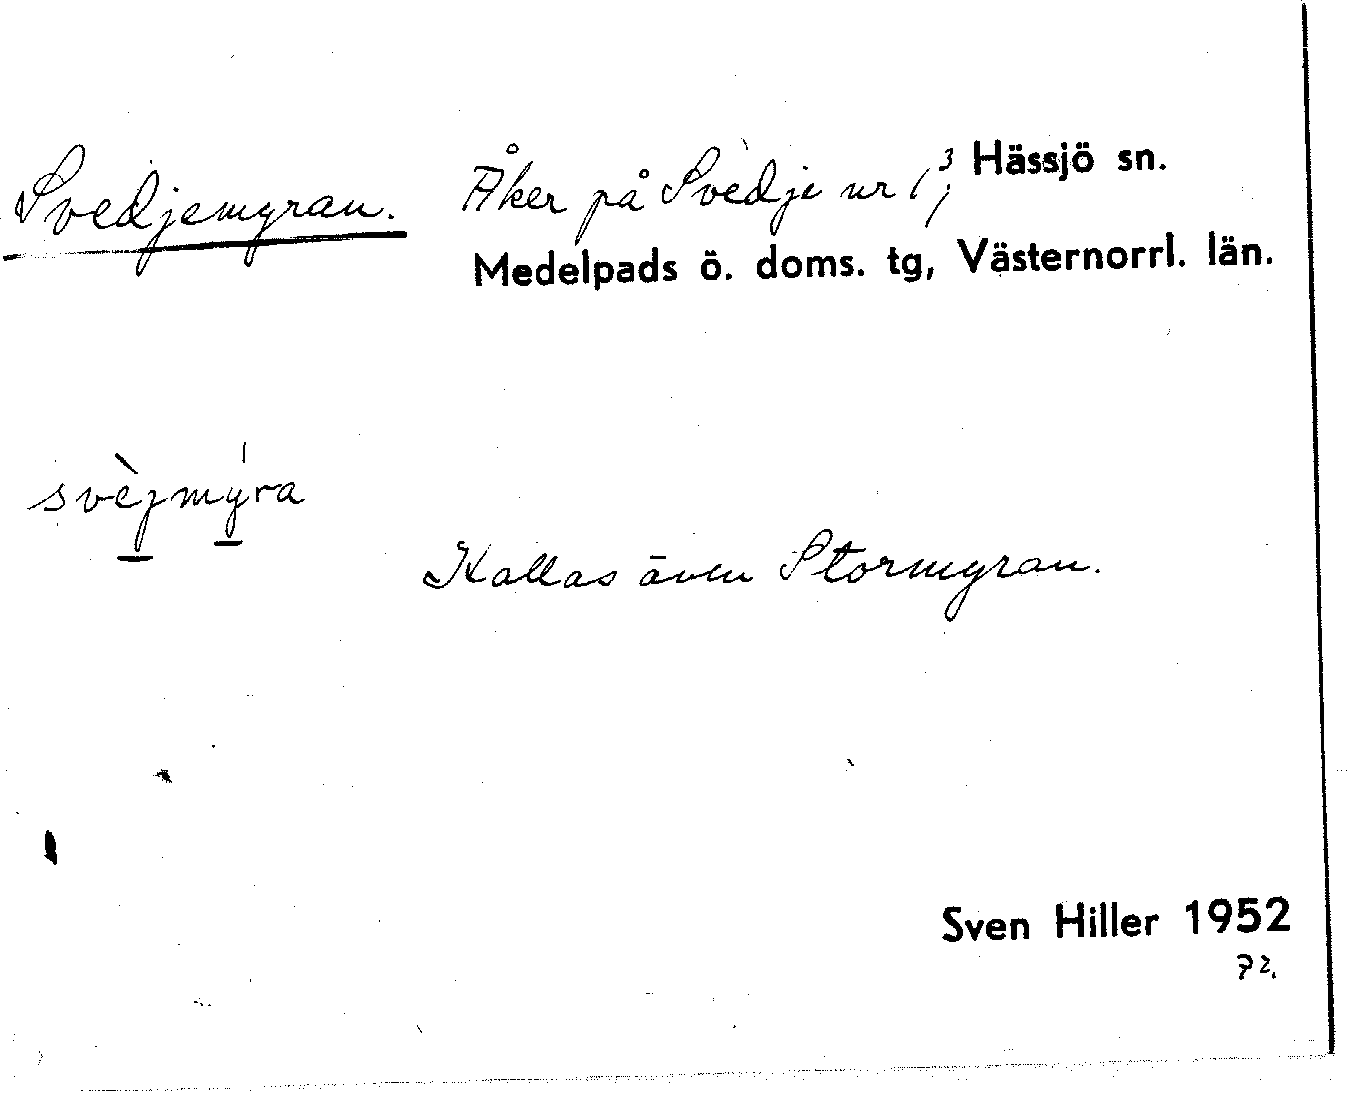 Svedjemyran. Åker på Svedje nr 1³; Hässjö sn.
Medelpads ö. doms. tg, Västernorrl. län.
svèjmýra
Kallas även Stormyran.
Sven Hiller 1952
72.